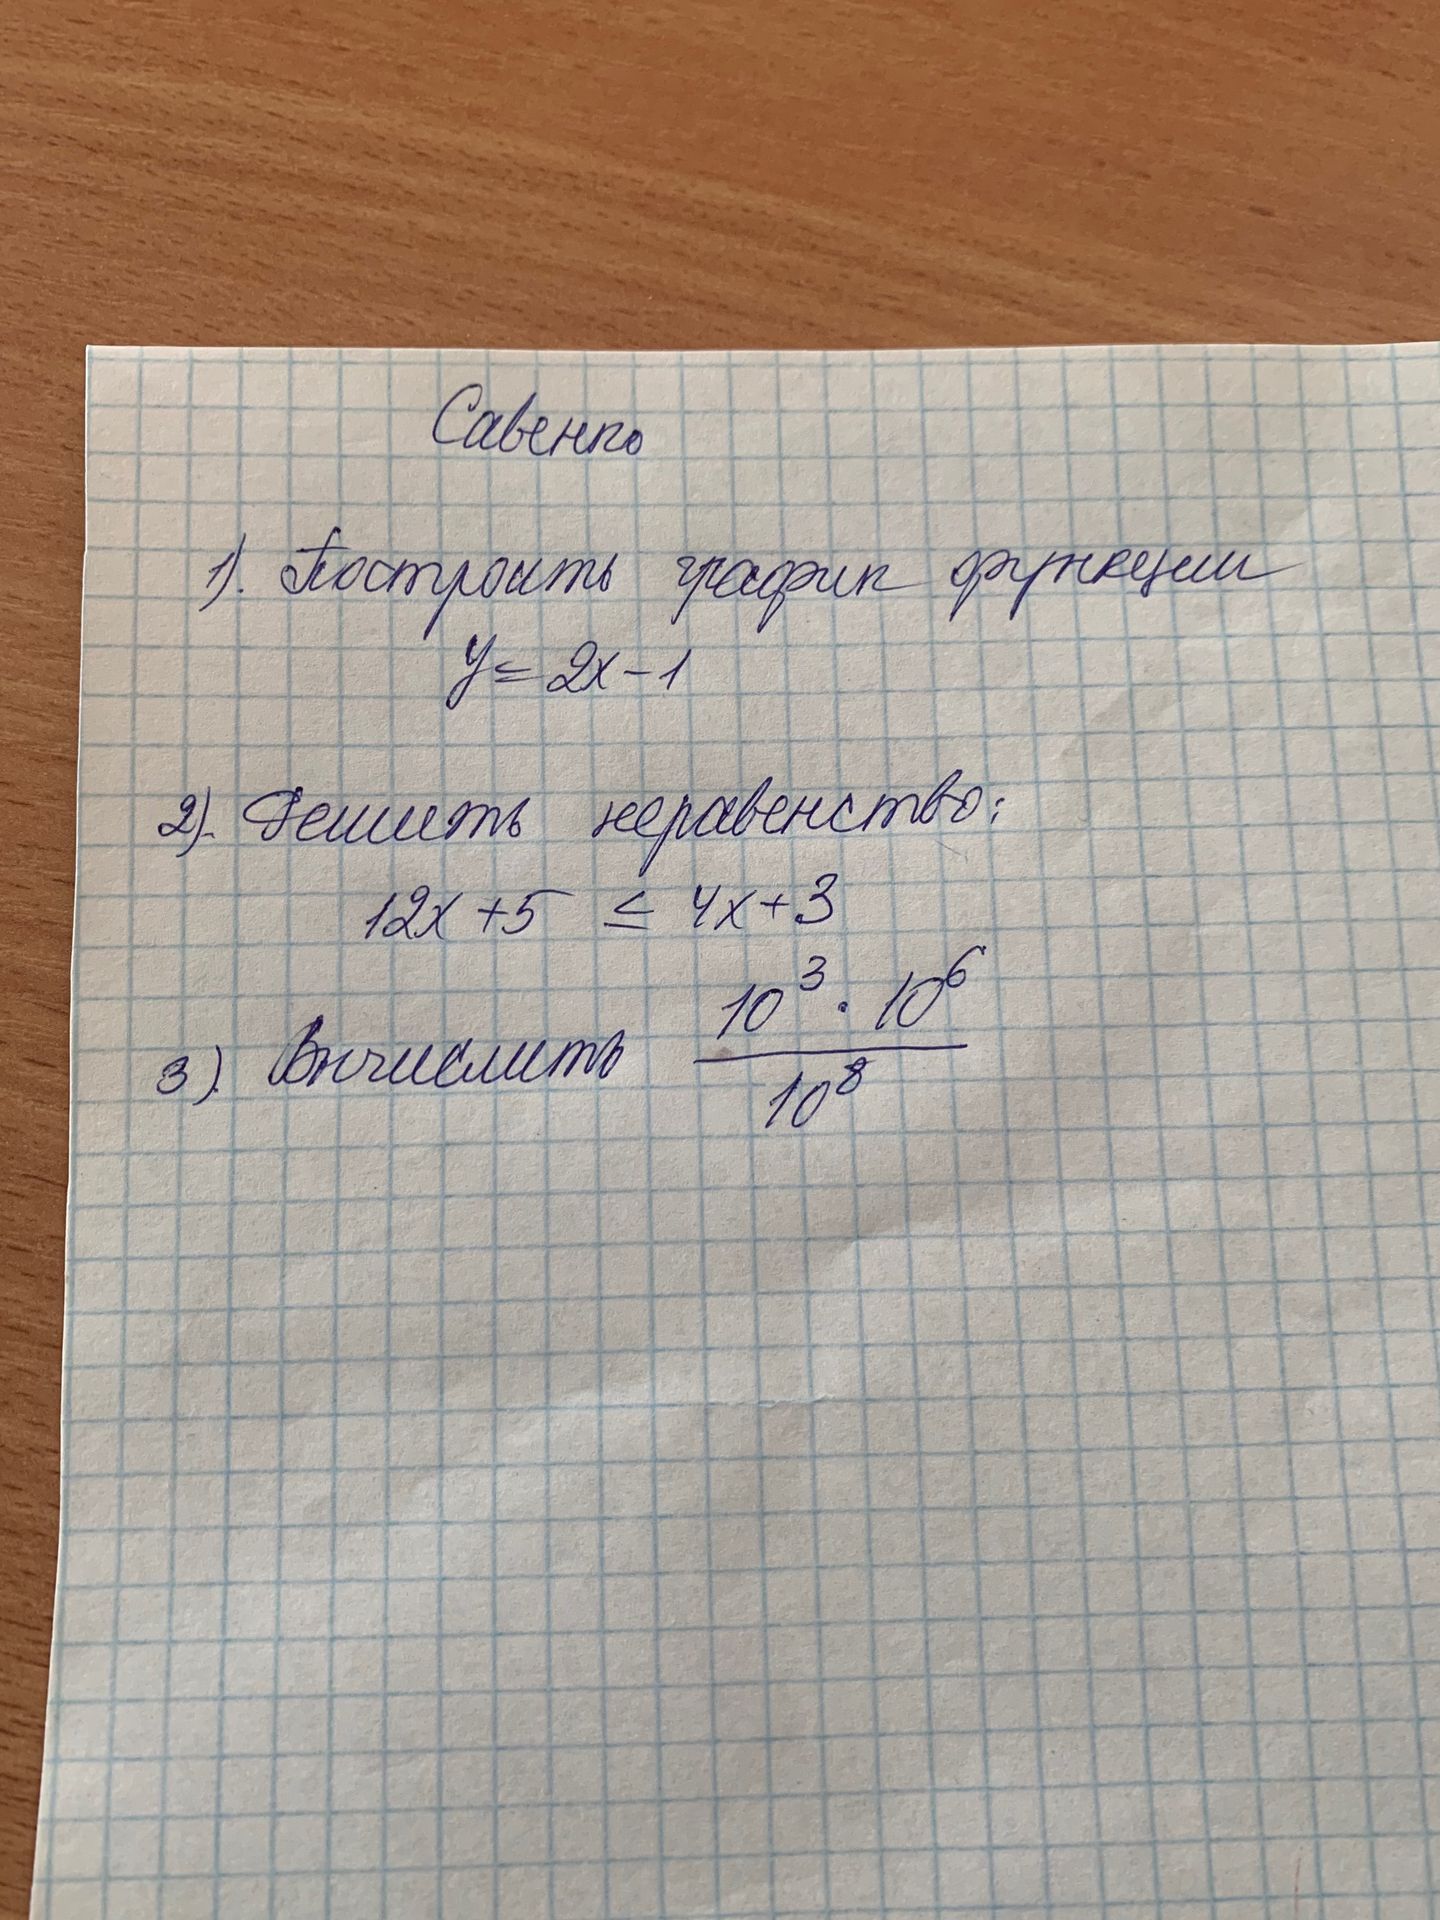 Савенко
1). Построить график функции
y = 2x - 1
2). Решить неравенство:
12x + 5 ≤ 4x + 3
3). Вычислить \frac{10^3 \cdot 10^6}{10^8}